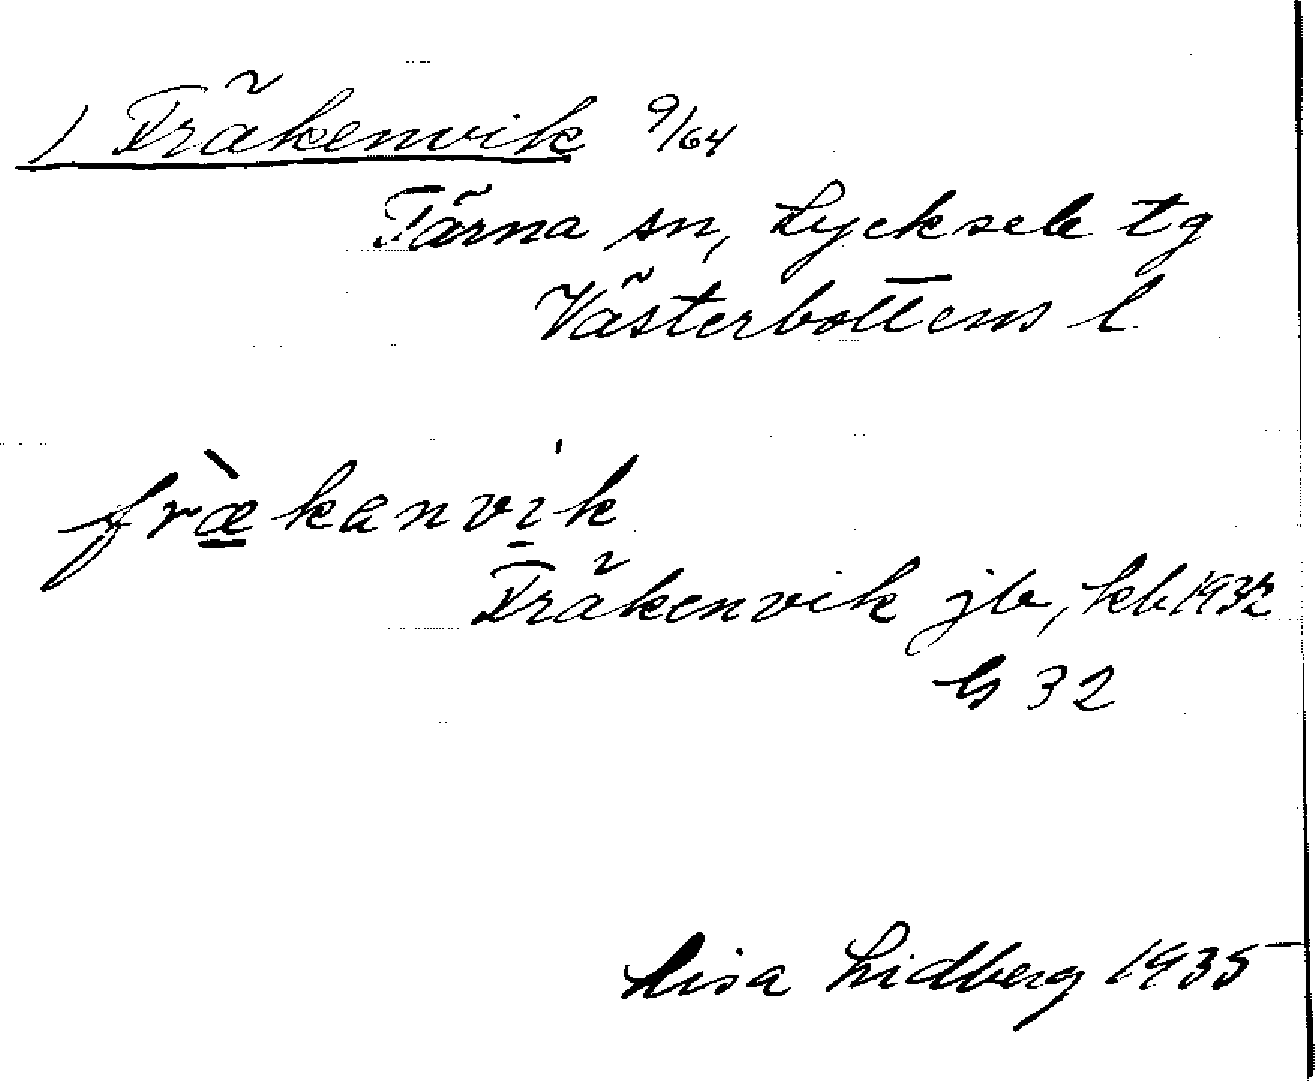 1 Fräkenvik 9/64
Tärna sn, Lycksele tg
Västerbottens l
fræ̀kanvik
Fräkenvik jb, kb 1932
G 32
Lisa Lidberg 1935